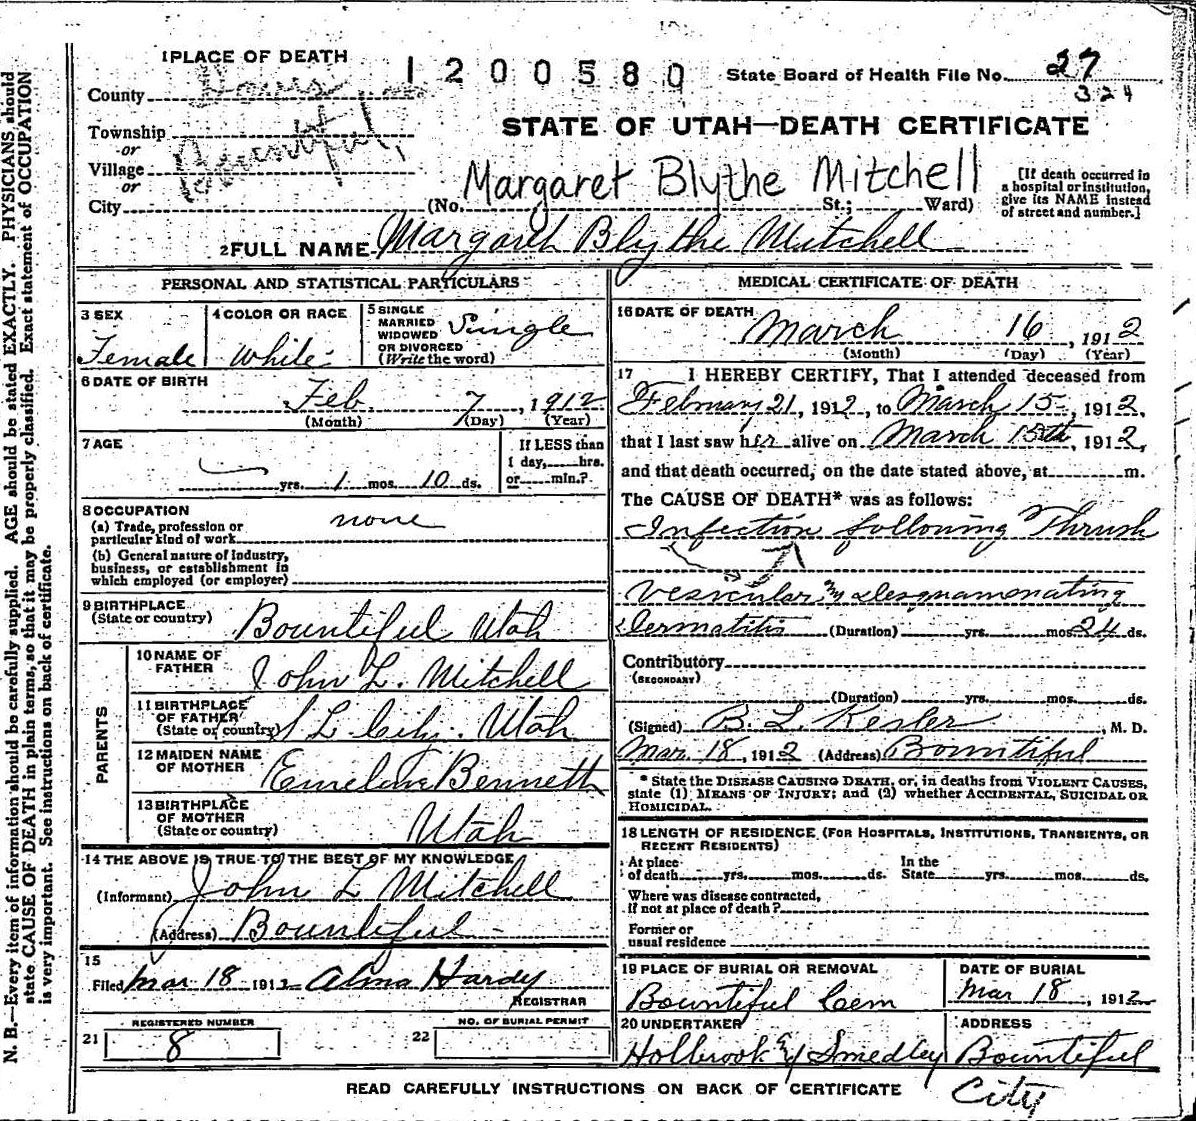 1 PLACE OF DEATH
1200580
State Board of Health File No. 27
324
County Davis
STATE OF UTAH—DEATH CERTIFICATE
Township
or
Village Bountiful,
or
Margaret Blythe Mitchell
[If death occurred in
a hospital or institution,
give its NAME instead
of street and number.]
City (No. St.; Ward)
2 FULL NAME Margaret Blythe Mitchell
PERSONAL AND STATISTICAL PARTICULARS
3 SEX
Female
4 COLOR OR RACE
White
5 SINGLE
MARRIED
WIDOWED
OR DIVORCED
(Write the word)
Single
6 DATE OF BIRTH
Feb. 7, 1912
(Month) (Day) (Year)
7 AGE
yrs. 1 mos. 10 ds.
If LESS than
1 day, hrs.
or min.?
8 OCCUPATION
(a) Trade, profession or
particular kind of work none
(b) General nature of Industry,
business, or establishment in
which employed (or employer)
9 BIRTHPLACE
(State or country) Bountiful Utah
PARENTS
10 NAME OF
FATHER John L. Mitchell
11 BIRTHPLACE
OF FATHER
(State or country) S L City. Utah
12 MAIDEN NAME
OF MOTHER Emeline Bennett
13 BIRTHPLACE
OF MOTHER
(State or country) Utah
14 THE ABOVE IS TRUE TO THE BEST OF MY KNOWLEDGE
(Informant) John L Mitchell
(Address) Bountiful
15
Filed Mar 18 1912 Alma Hardy
REGISTRAR
21 REGISTERED NUMBER
8
22 NO. OF BURIAL PERMIT
MEDICAL CERTIFICATE OF DEATH
16 DATE OF DEATH
March 16, 1912
(Month) (Day) (Year)
17 I HEREBY CERTIFY, That I attended deceased from
February 21, 1912, to March 15, 1912,
that I last saw her alive on March 15th, 1912,
and that death occurred, on the date stated above, at m.
The CAUSE OF DEATH* was as follows:
Infection following Thrush
Vesicular & desquamonating
dermatitis (Duration) yrs. mos. 24 ds.
Contributory
(SECONDARY)
(Duration) yrs. mos. ds.
(Signed) B. L. Kesler, M. D.
Mar. 18, 1912 (Address) Bountiful
* State the DISEASE CAUSING DEATH, or, in deaths from VIOLENT CAUSES,
state (1) MEANS OF INJURY; and (2) whether ACCIDENTAL, SUICIDAL OR
HOMICIDAL.
18 LENGTH OF RESIDENCE (FOR HOSPITALS, INSTITUTIONS, TRANSIENTS, OR
RECENT RESIDENTS)
At place
of death yrs. mos. ds.
In the
State yrs. mos. ds.
Where was disease contracted,
if not at place of death?
Former or
usual residence
19 PLACE OF BURIAL OR REMOVAL
Bountiful Cem
DATE OF BURIAL
Mar 18, 1912
20 UNDERTAKER
Holbrook & Smedley
ADDRESS
Bountiful
City
READ CAREFULLY INSTRUCTIONS ON BACK OF CERTIFICATE
N. B.—Every item of information should be carefully supplied. AGE should be stated EXACTLY. PHYSICIANS should
state CAUSE OF DEATH in plain terms, so that it may be properly classified. Exact statement of OCCUPATION
is very important. See instructions on back of certificate.